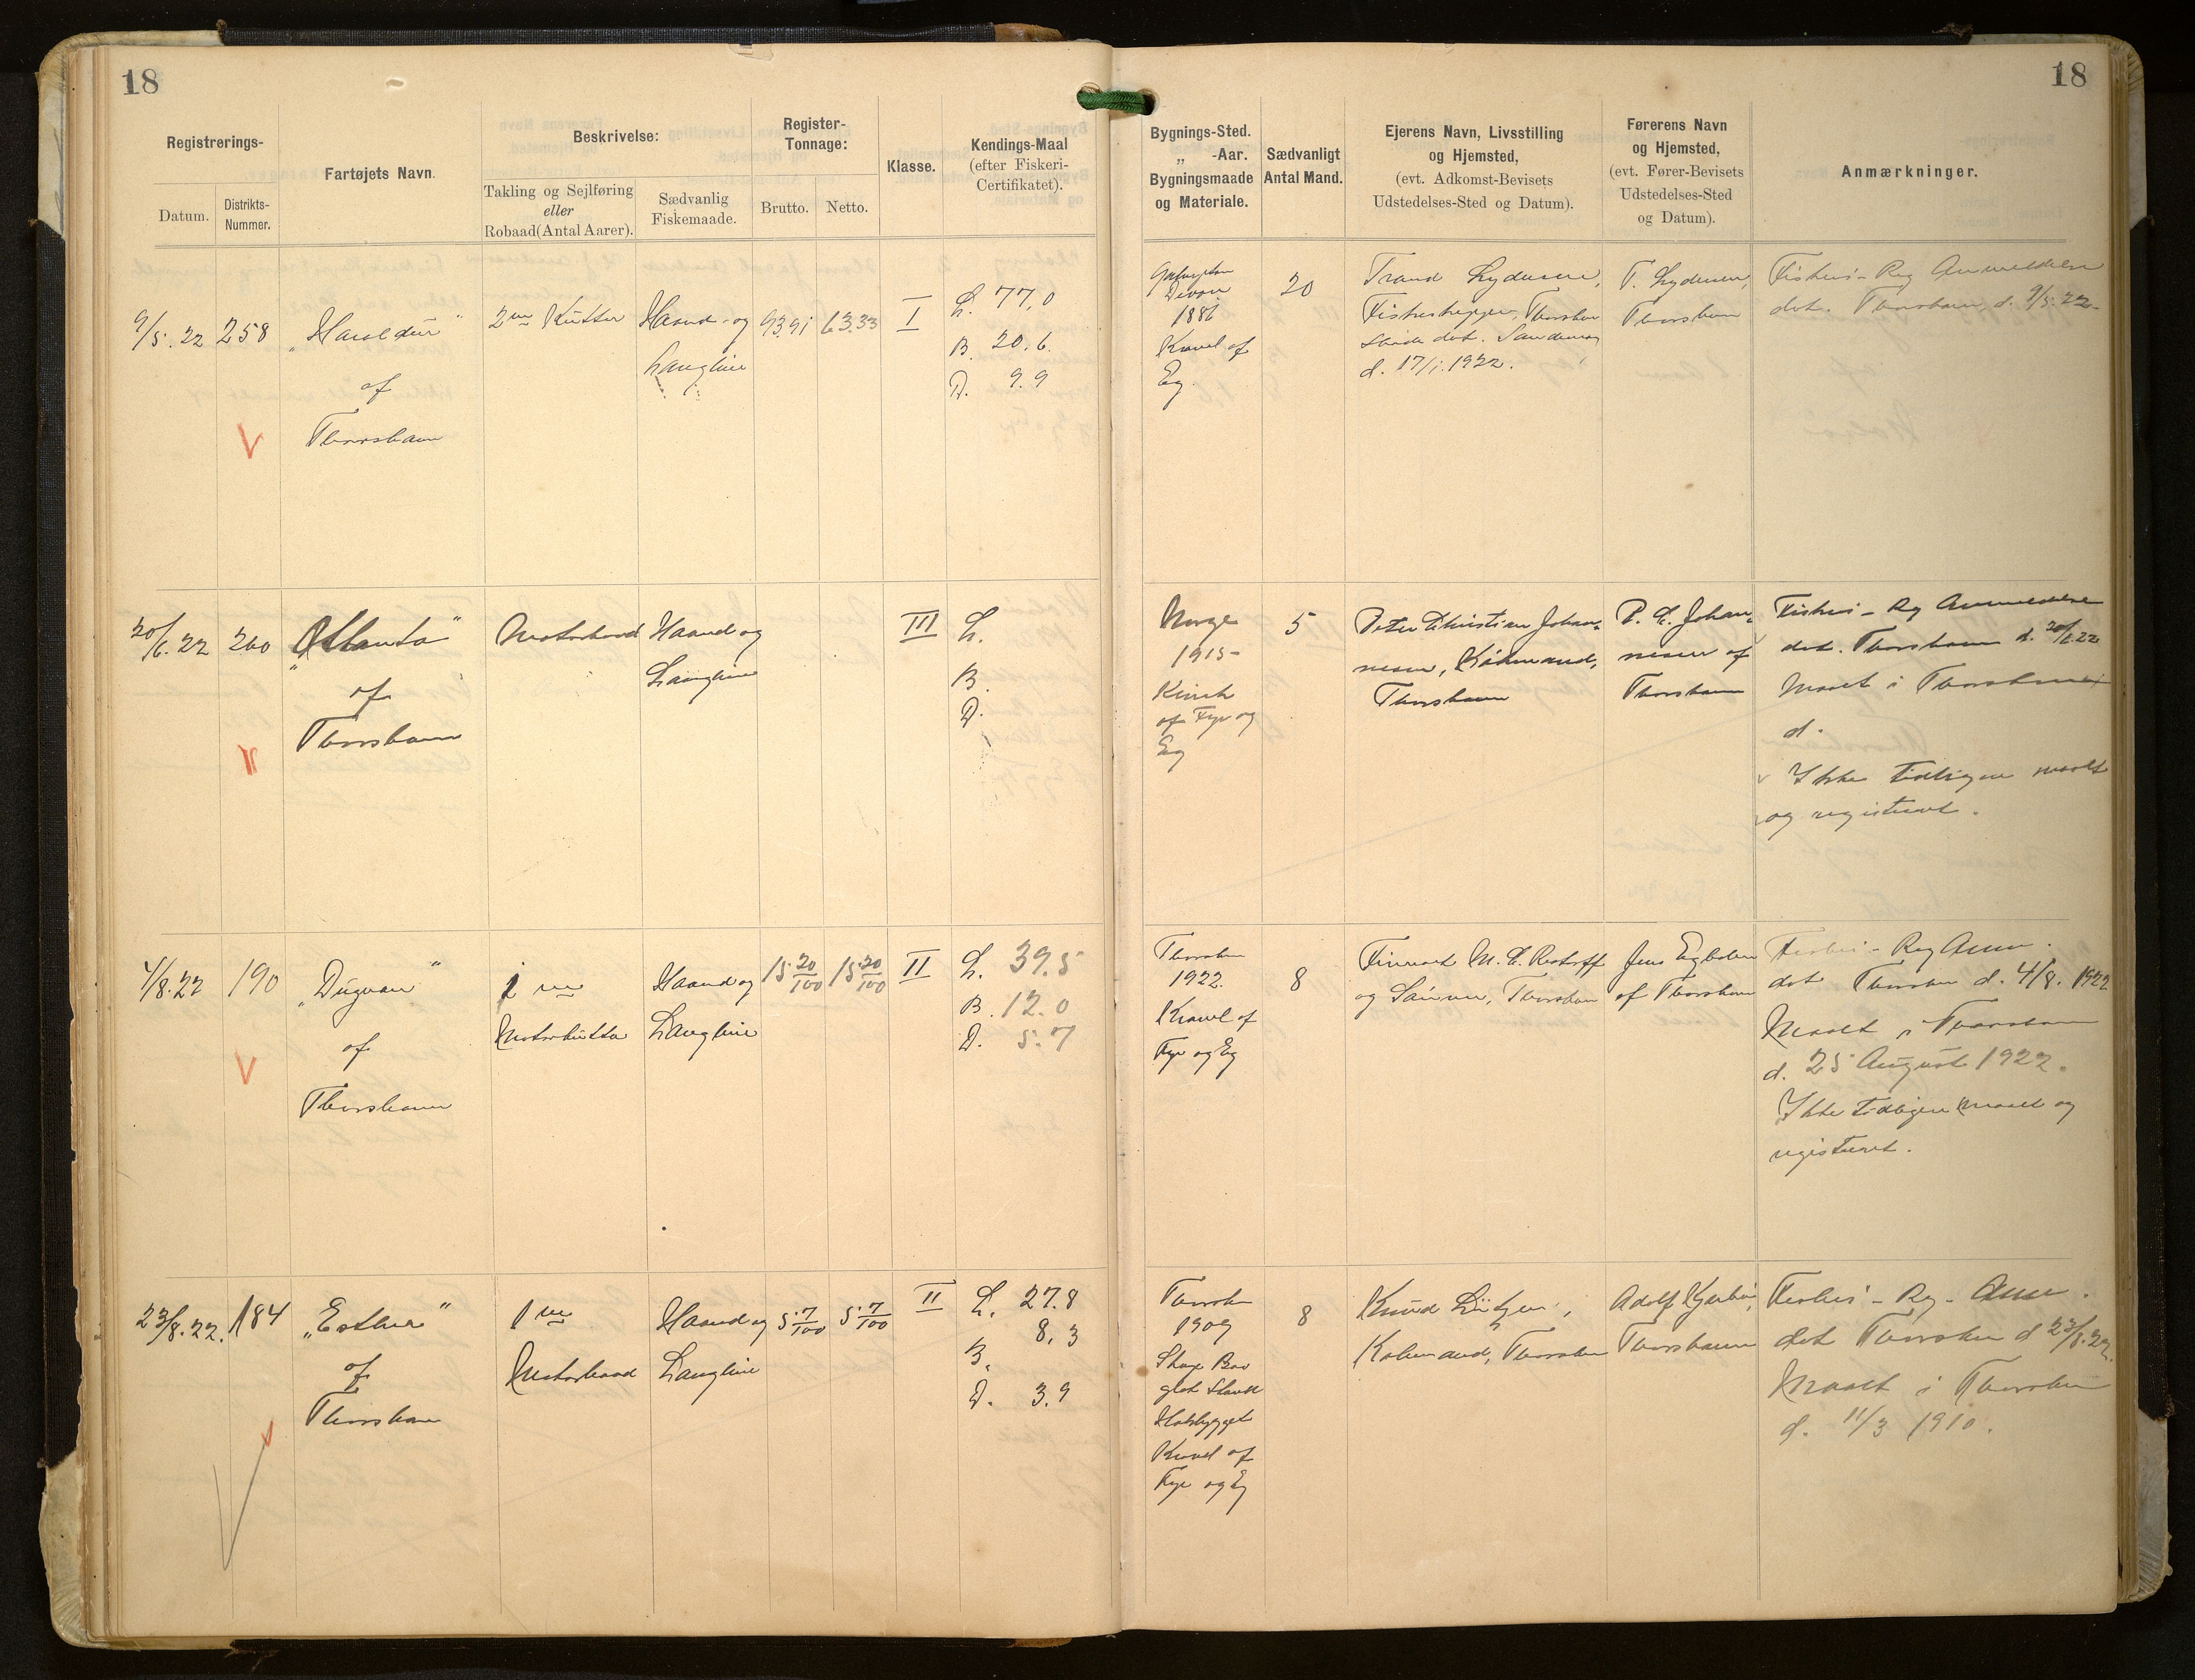 18
18
Registrerings-
Datum.
Distrikts-
Nummer.
Fartøjets Navn.
Beskrivelse:
Takling og Sejlføring
eller
Robaad(Antal Aarer).
Sædvanlig
Fiskemaade.
Register-
Tonnage:
Brutto.
Netto.
Klasse.
Kendings-Maal
(efter Fiskeri-
Certifikatet).
Bygnings-Sted.
„ -Aar.
Bygningsmaade
og Materiale.
Sædvanligt
Antal Mand.
Ejerens Navn, Livsstilling
og Hjemsted,
(evt. Adkomst-Bevisets
Udstedelses-Sted og Datum).
Førerens Navn
og Hjemsted,
(evt. Fører-Bevisets
Udstedelses-Sted
og Datum).
Anmærkninger.
9/5.22
258
„Haraldur"
af
Thorshavn
2m Kutter
Haand- og
Langline
93.91
63.33
I
L. 77,0
B. 20.6
D. 9.9
Devon
1886
Kravel af
Eg.
20
Trand Lydersen,
Fiskeskipper, Thorshavn
d. 17/1.1922.
T. Lydersen,
Thorshavn
Fiskeri-Reg Anmeldelse
dat. Thorshavn, d. 9/5.22
20/6.22
260
„Atlanta"
af
Thorshavn
Motorbaad
Haand og
Langline
III
L.
B.
D.
Norge
1915
Klink
af Fyr og
Eg
5
Peter Christian Johan-
nesen, Købmand,
Thorshavn
P. C. Johan-
nesen af
Thorshavn
Fiskeri-Reg Anmeldelse
dat. Thorshavn d. 20/6 22
Maalt i Thorshavn
d.
Ikke tidligere maalt
og registreret.
4/8.22
190
„Dugvan"
af
Thorshavn
1 m
Motorkutter
Haand og
Langline
15 20/100
15 20/100
II
L. 39.5
B. 12.0
D. 5.7
Thorshavn
1922.
Kravel af
Fyr og Eg
8
Firmaet M. C. Restorff
og Sønner, Thorshavn
Jens Egholm
af Thorshavn
Fiskeri-Reg Anm.
dat Thorshavn d. 4/8. 1922
Maalt i Thorshavn
d. 25 August 1922.
Ikke tidligere maalt og
registreret.
23/8.22.
184
„Esther"
af
Thorshavn
1 m
Motorbaad
Haand og
Langline
5 7/100
5 7/100
II
L. 27.8
B. 8,3
D. 3.9
Thorshavn
1909
Kravel af
Fyr og Eg
8
Knud Lützen,
Købmand, Thorshavn
Adolf
Thorshavn
Fiskeri-Reg-Anm.
dat Thorshavn d 23/8.22.
Maalt i Thorshavn
d. 11/3 1910.